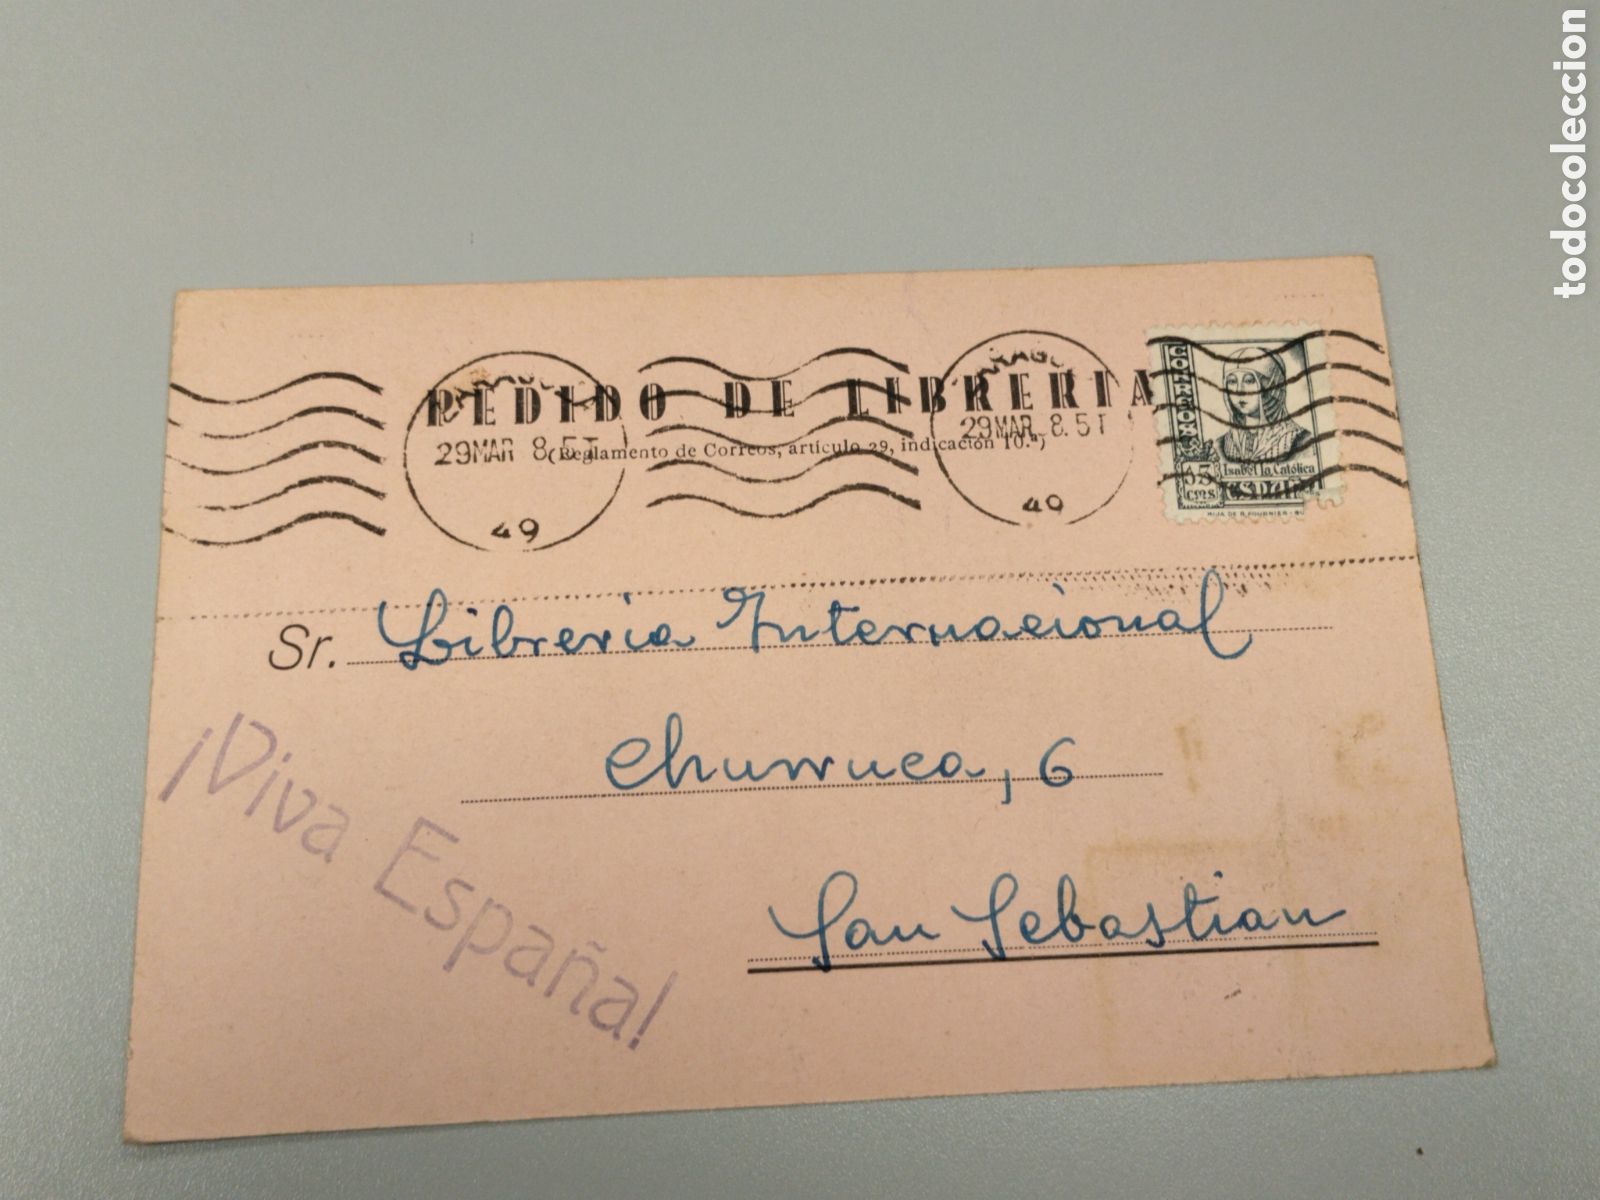 todocoleccion
PEDIDO DE LIBRERIA
(Reglamento de Correos, artículo 29, indicación 10.ª)
29 MAR 8.5T
49
29 MAR 8.5T
49
CORREOS
Isabel la Católica
CMS ESPAÑA
HIJA DE B. FOURNIER
Sr. Libreria Internacional
Churruca, 6
San Sebastian
¡Viva España!